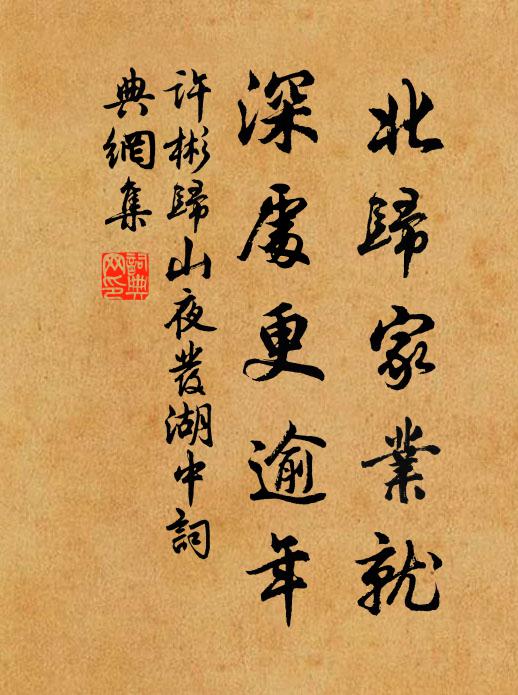 北歸家業就
深處更逾年
許彬歸山夜發湖中詞
典網集
詞典
网印